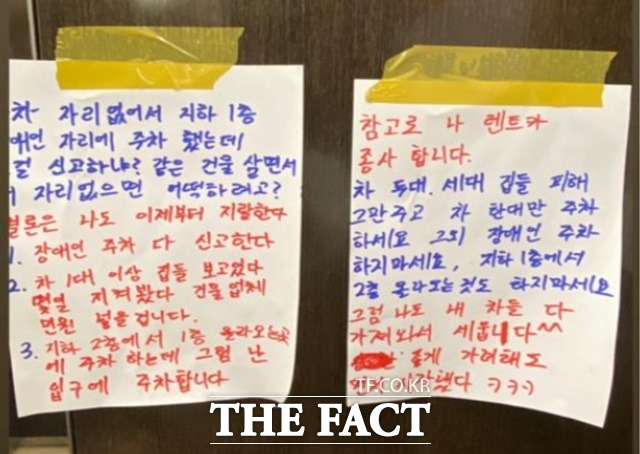 차 자리 없어서 지하 1층
애인 자리에 주차 했는데
걸 신고하냐? 같은 건물 살면서
자리없으면 어떡하려고?
결론은 나도 이제부터 지랄한다
1. 장애인 주차 다 신고한다
2. 차 1대 이상 집들 보고있다
몇일 지켜봤다 건물업체
민원 넣을겁니다.
3. 지하 2층에서 1층 올라오는곳
에 주차 하는데 그럼 난
입구에 주차합니다
참고로 나 렌트카
종사 합니다.
차 두대. 세대 집들 피해
그만주고 차 한대만 주차
하세요 그리 장애인 주차
하지마세요, 지하 1층에서
2층 올라오는것도 하지마세요
그럼 나도 내 차들 다
가져와서 세웁니다^^
좋게 가려해도
ㅋㅋㅋ
TF.CO.KR
THE FACT